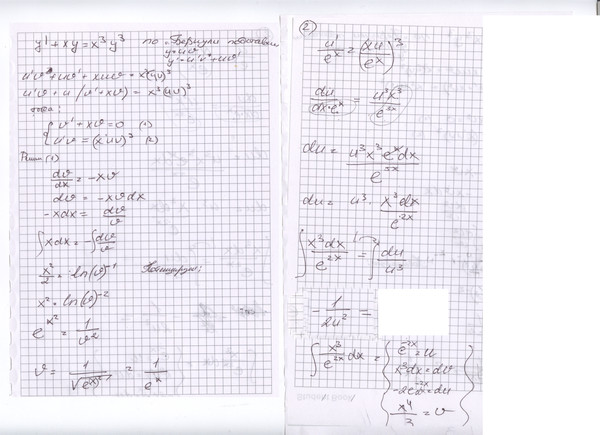 y' + xy = x³y³ по Бернули подставим
y = uv
y' = u'v + uv'
u'v + uv' + xuv = x³(uv)³
u'v + u(v' + xv) = x³(uv)³
тогда:
{ v' + xv = 0 (1)
u'v = (xuv)³ (2)
Решим (1)
dv/dx = -xv
dv = -xv dx
-xdx = dv/v
∫xdx = -∫dv/v
x²/2 = ln(v)⁻¹
x² = ln(v)⁻²
e^x² = 1/v²
v = 1/√(e^x)² = 1/e^x
(2)
u'/e^x = (xu/e^x)³
du/(dx·e^x) = u³x³/e^3x
du = u³x³e^x dx/e^3x
du = u³ · x³dx/e^2x
∫x³dx/e^2x = ∫du/u³
-1/2u² =
∫x³/e^2x dx = { e^-2x = u
x³dx = dv
-2e^-2x dx = du
x⁴/3 = v }